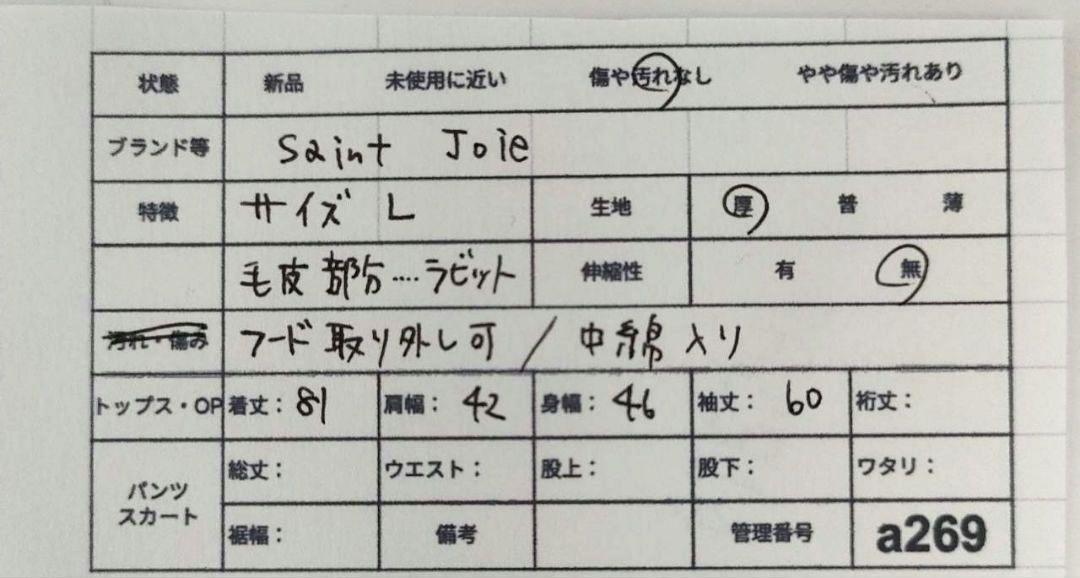 状態 新品 未使用に近い 傷や汚れなし やや傷や汚れあり
ブランド等 Saint Joie
特徴 サイズ L 生地 厚 普 薄
毛皮部分‥‥ラビット 伸縮性 有 無
汚れ・傷み フード取り外し可 / 中綿入り
トップス・OP 着丈: 81 肩幅: 42 身幅: 46 袖丈: 60 裄丈:
パンツ スカート 総丈: ウエスト: 股上: 股下: ワタリ:
裾幅: 備考 管理番号 a269